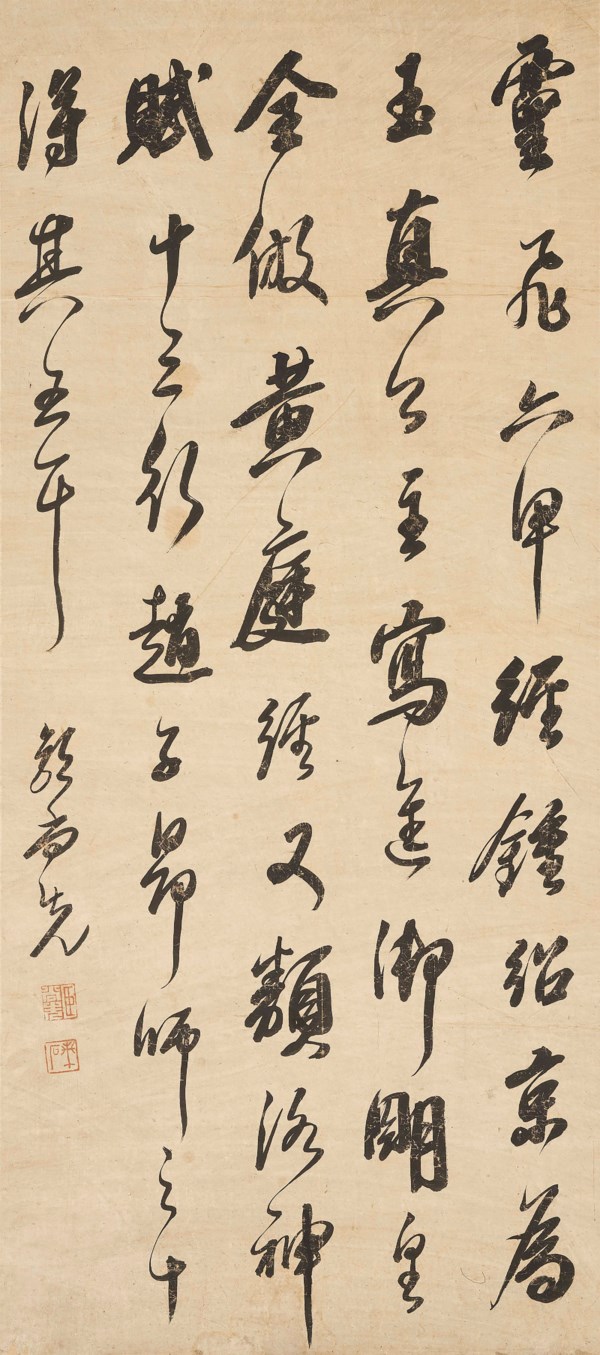 靈飛六甲經鍾紹京為
玉真公主寫進御明皇
全倣黃庭經又類洛神
賦十三行趙子昂師之十
得其五耳
郭尚先